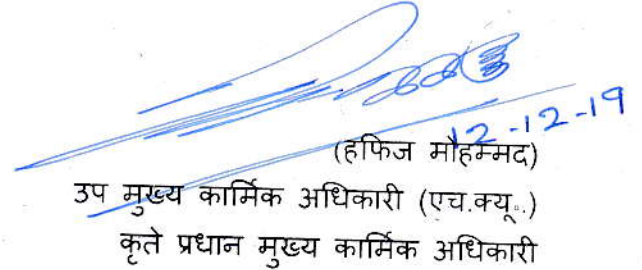 12-12-19
(हफिज मौहम्मद)
उप मुख्य कार्मिक अधिकारी (एच.क्यू..)
कृते प्रधान मुख्य कार्मिक अधिकारी